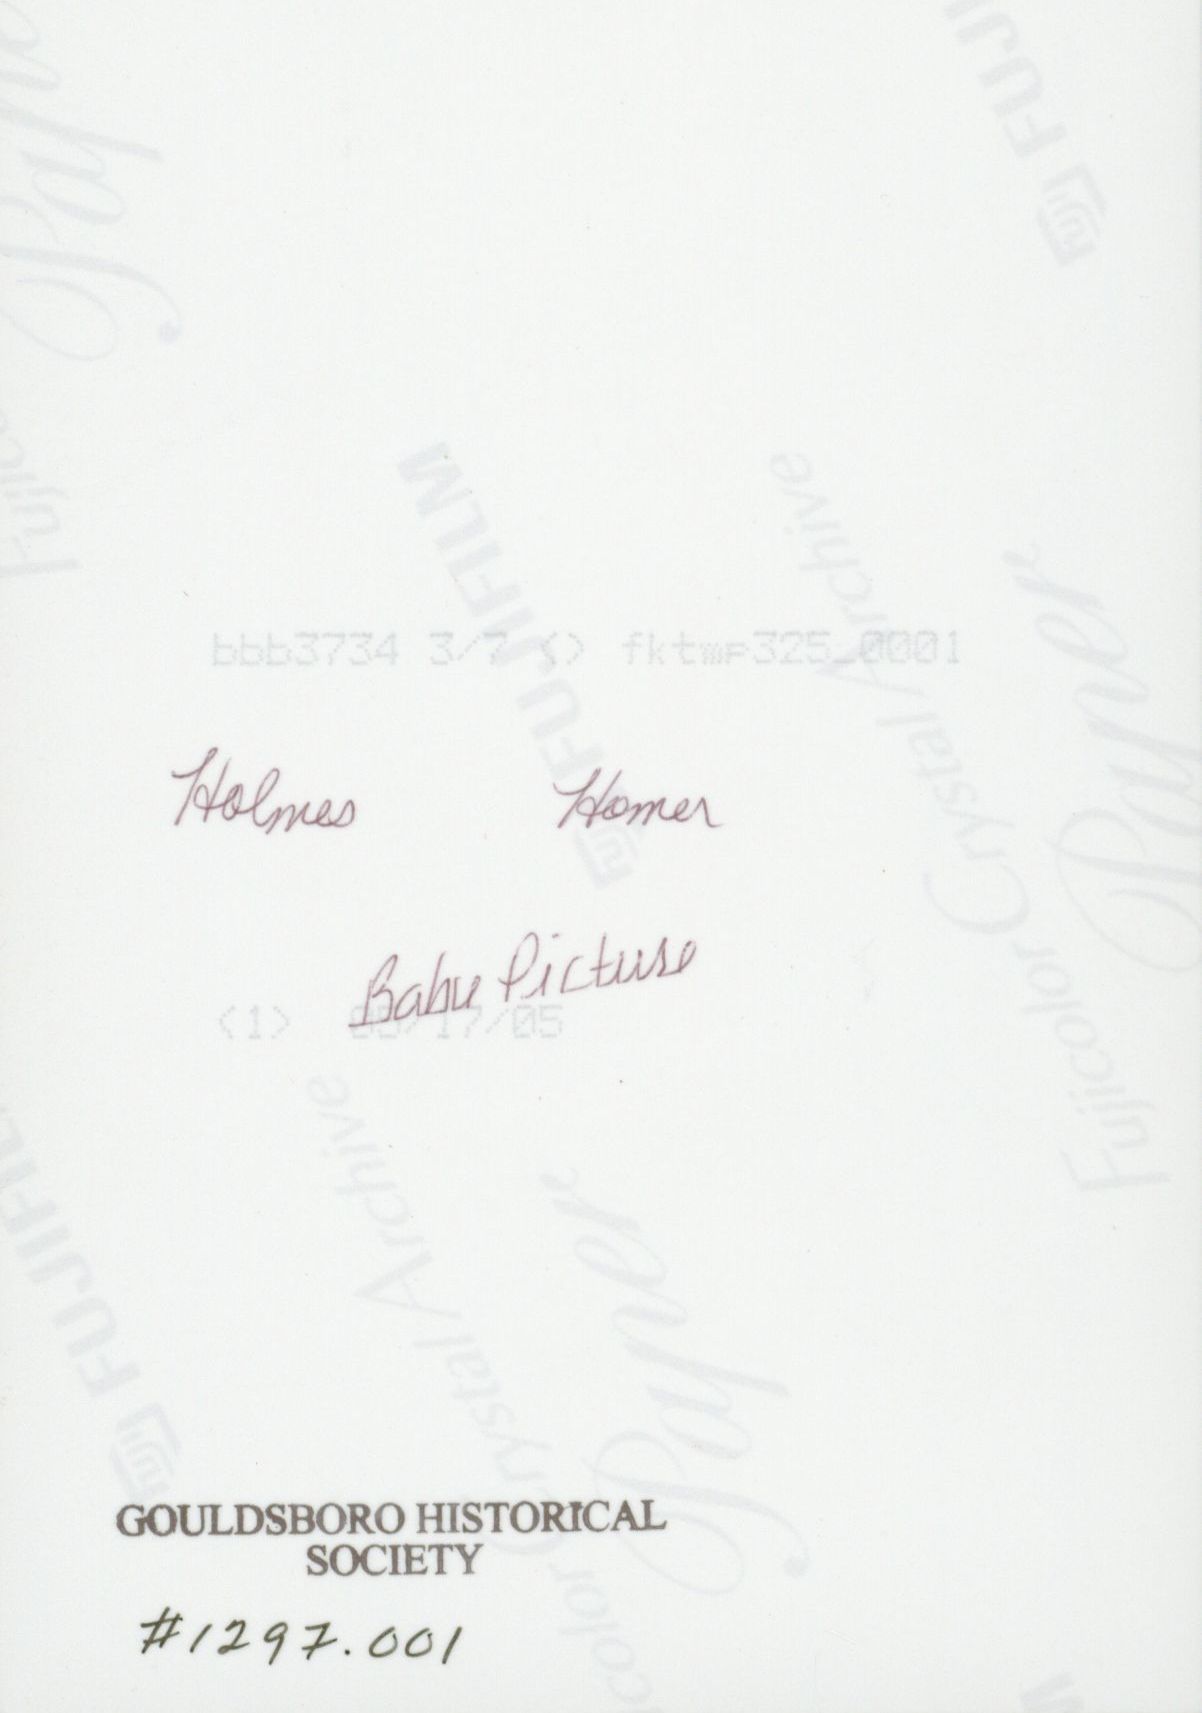 bbb3734 3/7 <> fktmp325_0001
Holmes Homer
Baby Picture
<1> 05/17/05
GOULDSBORO HISTORICAL
SOCIETY
#1297.001
FUJIFILM
Fujicolor Crystal Archive
Paper